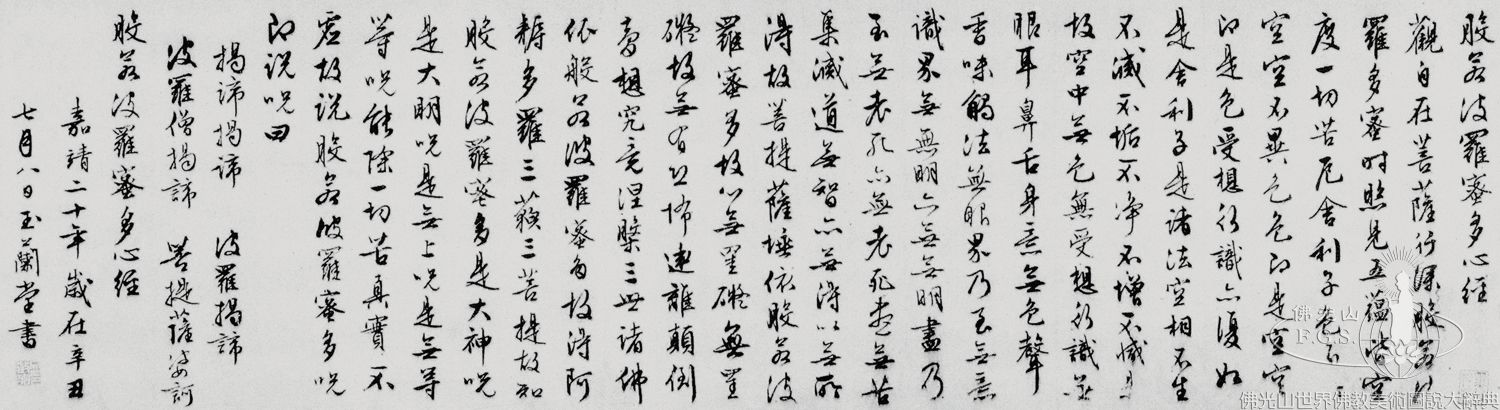 般若波羅蜜多心經
觀自在菩薩行深般若波
羅多蜜時照見五蘊皆空
度一切苦厄舍利子色不異
空空不異色色即是空空
即是色受想行識亦復如
是舍利子是諸法空相不生
不滅不垢不淨不增不減是
故空中無色無受想行識無
眼耳鼻舌身意無色聲
香味觸法無眼界乃至無意
識界無無明亦無無明盡乃
至無老死亦無老死盡無苦
集滅道無智亦無得以無所
得故菩提薩埵依般若波
羅蜜多故心無罣礙無罣
礙故無有恐怖遠離顛倒
夢想究竟涅槃三世諸佛
依般若波羅蜜多故得阿
耨多羅三藐三菩提故知
般若波羅蜜多是大神呪
是大明呪是無上呪是無等
等呪能除一切苦真實不
虛故說般若波羅蜜多呪
即說呪曰
揭諦揭諦 波羅揭諦
波羅僧揭諦 菩提薩婆訶
般若波羅蜜多心經
嘉靖二十年歲在辛丑
七月八日玉蘭堂書
佛光山
F.G.S.
佛光山世界佛教美術圖說大辭典